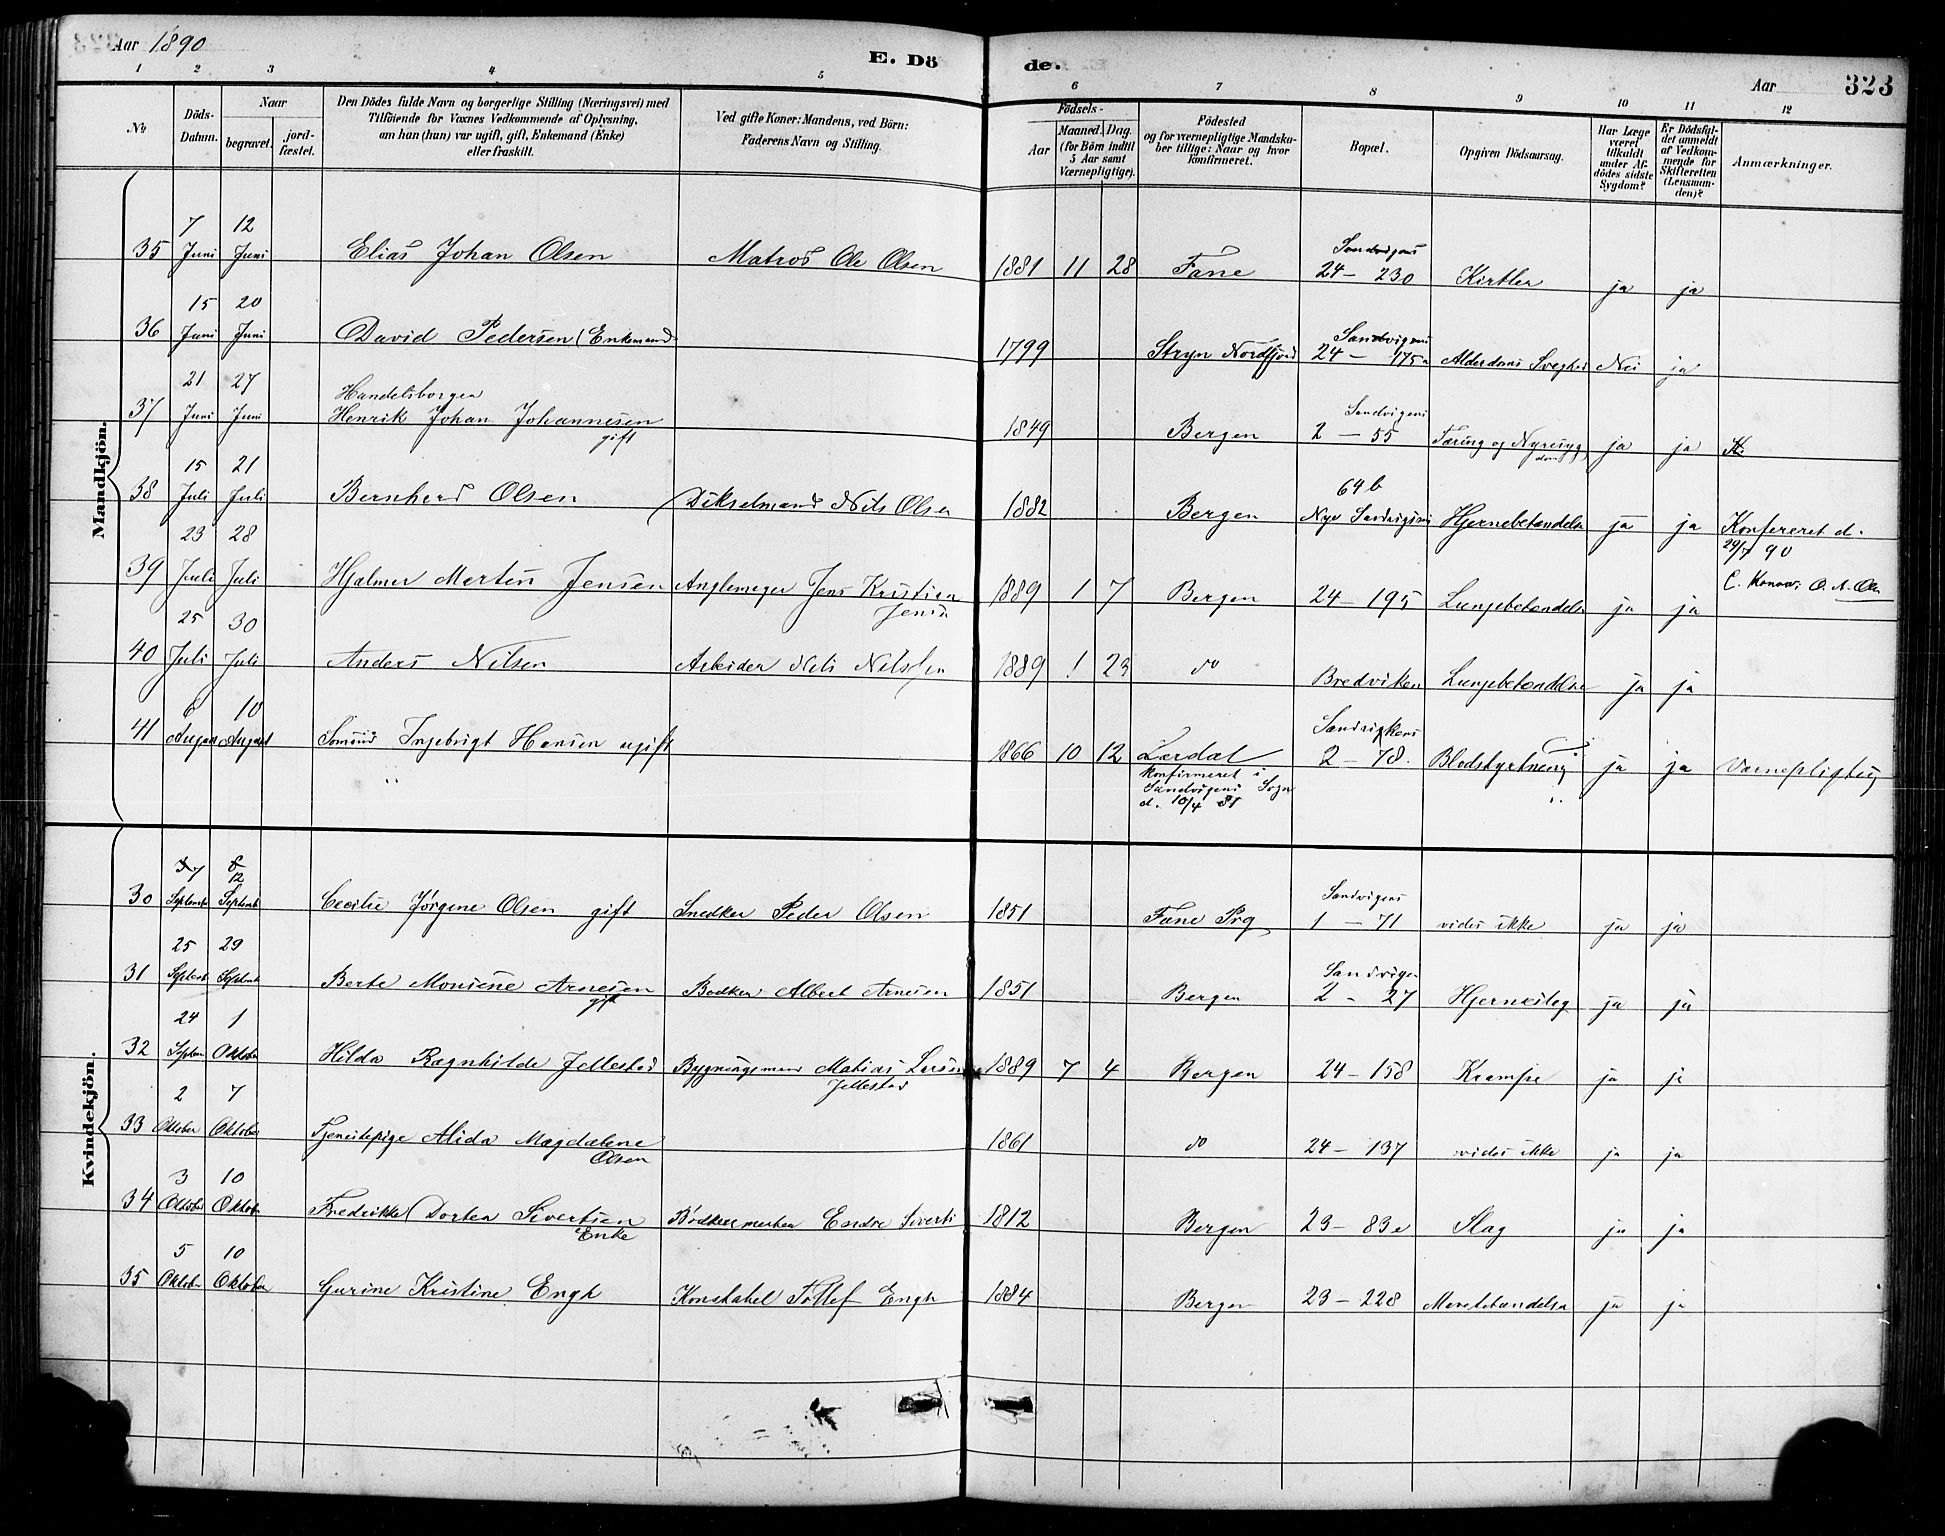 Aar 1890
E. Döde.
Aar
323
1 2 3 4 5 6 7 8 9 10 11 12
No
Döds-Datum.
Naar
begravet.
jordfæstet.
Den Dödes fulde Navn og borgerlige Stilling (Næringsvei) med
Tilföiende for Voxnes Vedkommende af Oplysning,
om han (hun) var ugift, gift, Enkemand (Enke)
eller fraskilt.
Ved gifte Koner: Mandens, ved Börn:
Faderens Navn og Stilling.
Födsels-
Aar
Maaned. Dag.
(for Börn indtil
5 Aar samt
Værnepligtige).
Födested
og for værnepligtige Mandska-
ber tillige: Naar og hvor
konfirmeret.
Bopæl.
Opgiven Dödsaarsag.
Har Læge
været
tilkaldt
under Af-
dödes sidste
Sygdom?
Er Dödsfal-
det anmeldt
af Vedkom-
mende for
Skifteretten
(Lensman-
den)?
Anmærkninger.
Mandkjön.
35 7 Juni 12 Juni Elias Johan Olsen Matros Ole Olsen 1881 11 28 Fane Sandvigens 24 – 230 Kirtler ja ja
36 15 Juni 20 Juni David Pedersen (Enkemand 1799 Stryn Nordfjord Sandvigens 24 – 175a Alderdoms Svaghed Nei ja
37 21 Juni 27 Juni Handelsborger
Henrik Johan Johannesen
gift 1849 Bergen Sandvigens 2 – 55 Tæring og Nyresyg
dom ja ja
38 15 Juli 21 Juli Bernherd Olsen Dikselmand Nils Olsen 1882 Bergen 64 b
Nye Sandvigsvei Hjernebetændelse ja ja Konfereret d.
29/7 90
C. Konow O. A. Olsen
39 23 Juli 28 Juli Hjalmer Martin Jensen Anglemager Jens Kristian
Jensen 1889 1 7 Bergen 24 – 195 Lungebetændelse ja ja
40 25 Juli 30 Juli Anders Nilsen Arbeider Nils Nilssen 1889 1 23 do Bredviken Lungebetændelse ja ja
41 6 August 10 August Ingebrigt Hansen ugift 1866 10 12 Lærdal
Konfirmeret i
Sandvigens Sogn
d. 10/4 81 Sandvikens 2 – 78. Blodstyrtning ja ja Værnepligtig
Kvindekjön.
30 7 Septemb 12 Septemb Cecilie Jørgine Olsen gift Snedker Peder Olsen 1851 Fane Prg Sandvigens 1 – 71 vides ikke ja ja
31 25 Septemb 29 Septemb Berte Monsine Arnesen
gift Bødker Albert Arnesen 1851 Bergen Sandvigen 2 – 27 Hjerneslag ja ja
32 24 Septem 1 Oktober Hilda Ragnhilde Jellestad Bygningsmand Matias Larsen
Jellestad 1889 7 4 Bergen 24 – 158 Krampe ja ja
33 2 Oktober 7 Oktober Tjenestepige Alida Magdalene
Olsen 1861 do 24 – 137 vides ikke ja ja
34 3 Oktober 10 Oktober Fredrikke Dortea Sivertsen
Enke Bødkermester Endre Siverts 1812 Bergen 23 – 83e Slag ja ja
35 5 Oktober 10 Oktober Gurine Kristine Engh Konstabel Tollef Engh 1884 Bergen 23 – 228 Mavebetændelse ja ja